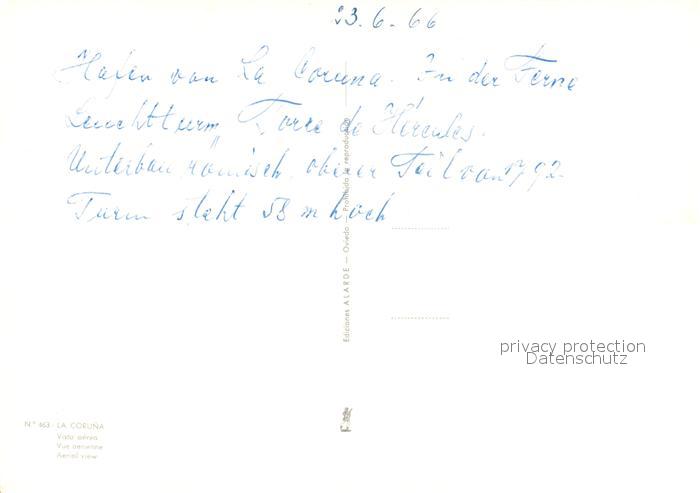 23.6.66
Hafen von La Coruna. In der Ferne
Leuchtturm Torre de Hercules.
Unterbau römisch, oberer Teil von 1792.
Turm steht 58 m hoch
Ediciones ALARDE — Oviedo — Prohibida la reproducción
privacy protection
Datenschutz
N.° 463 - LA CORUÑA
Vista aérea
Vue aerienne
Aerial view